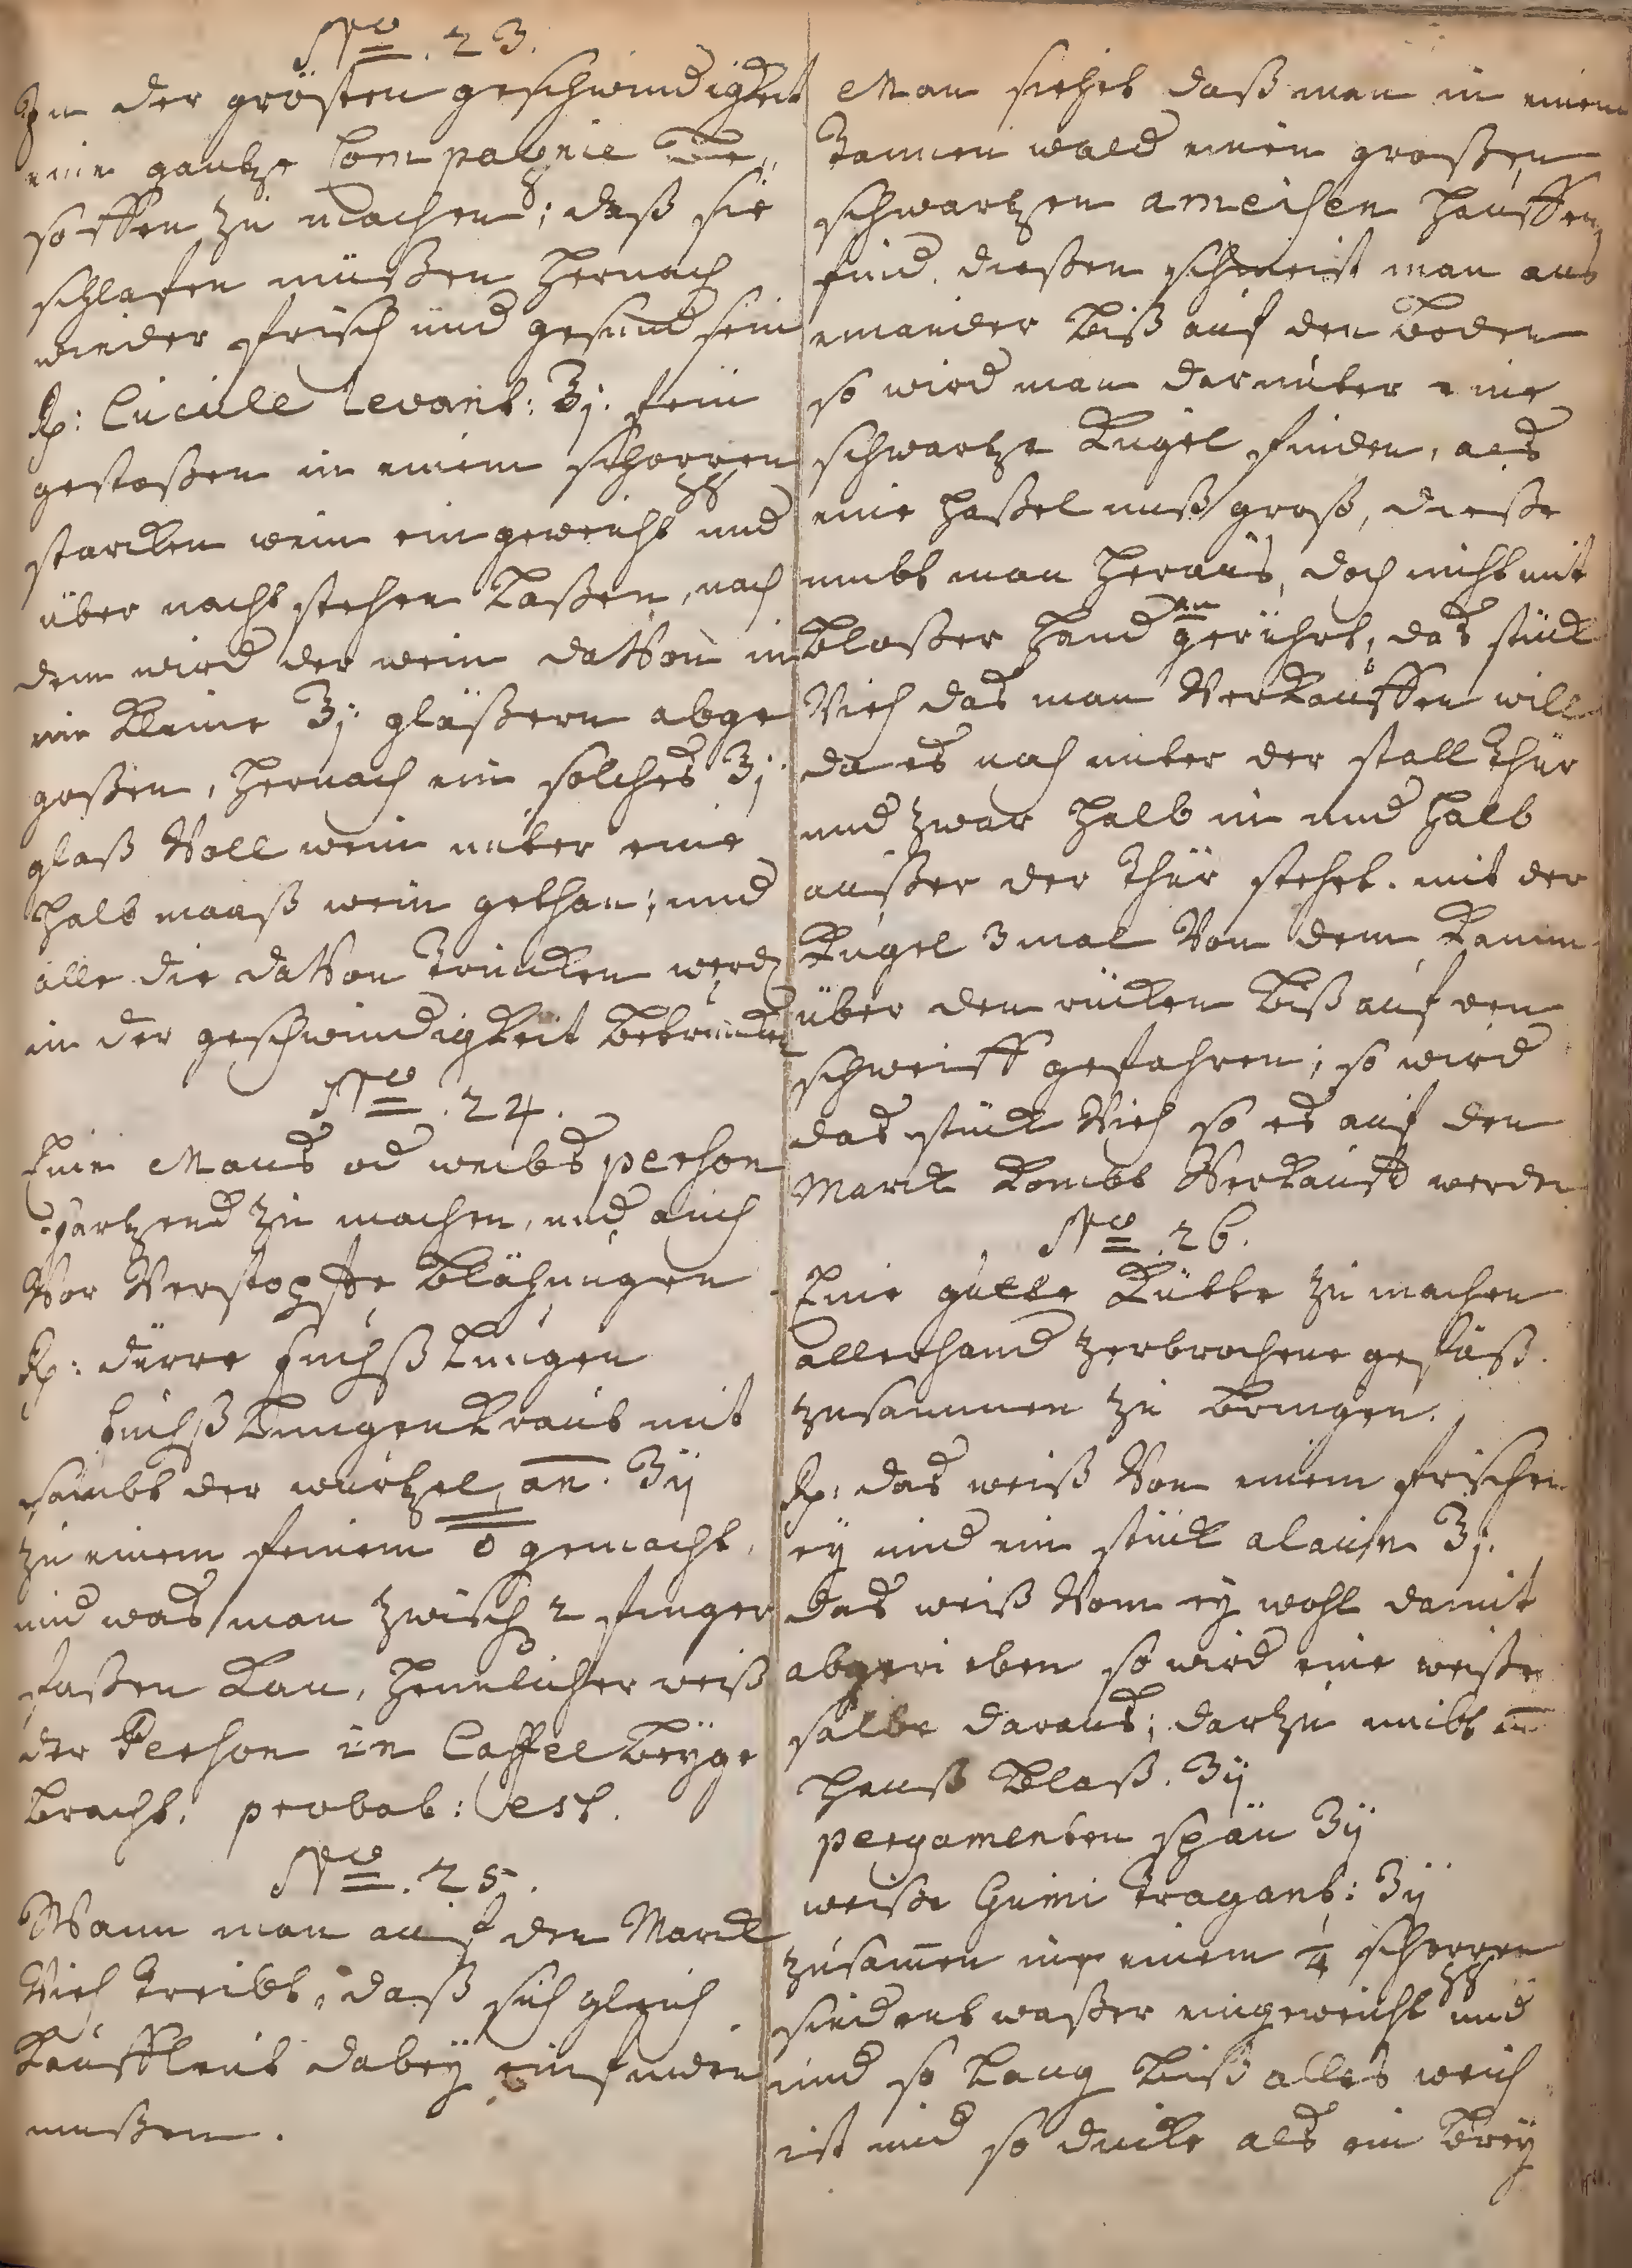 No. 23.
In der grösten geschwindigkeit
eine gantze Compagnie be„
soffen zu machen; daß sie
schlafen müßen hernach
wieder frisch und gesund sein
Rp: Cucule Levant: ℥j. fein
gestoßen in einem schoppen
starcken wein eingeweicht und
über nacht stehen laßen, nach
dem wird der wein davon in
ein kleine ℥j. gläßern abge
goßen, hernach ein solches ℥j.
glaß voll wein unter eine
halb maaß wein gethan; und
alle die davon trincken werd
in der geschwindigkeit betruncken
No. 24.
Eine Mans od weibs person
fartzend zu machen, und auch
vor verstopfte blähungen
Rp: dürre fuchß lungen
buchß lungenkraut mit
sambt der wurtzel, an. ℥ij
zu einem feinem gemacht,
und was man zwisch 2 finger
faßen kan, heimlicher weiß
der Person in Caffee beyge
bracht. probat: est.
No. 25.
Wann man auf den Marck
Vieh treibt, daß sich gleich
kauffleut dabey einfinden
mußen.
Man siehet daß man in einem
tannen wald einen großen
schwartzen ameisen hauffen
find, dießen schmeist man aus
einander biß auf den boden
so wird man darunter eine
schwartze kugel finden, als
eine haßelnuß groß, dieße
nimbt man heraus, doch nicht mit
bloßer hand an gerührt, das stück
Vieh das man verkauffen will
da es noch unter der stall thür
und zwar halb in und halb
außer der thür stehet. mit der
kugel 3 mal von dem kamm
über den rücken biß auf den
schweiff gefahren; so wird
das stück Vieh so es auf den
Marck kombt verkaufft werden
No. 26.
Eine gutte kütte zu machen
allerhand zerbrochene gefäß
zusammen zu bringen.
Rp: das weiß von einem frischen
ey und ein stück alaun ℥j.
das weiß vom ey wohl damit
abgerieben so wird eine weiße
salbe daraus; dartzu nimbt m
hauß blaß. ℥ij
pergamenten spän ℥ij
weiße Gumi tragant: ℥ij
zusamen in einem 1/4 schoppen
siedent waßer eingeweicht und
und so lang biß alles weich
ist und so dicke als ein brey